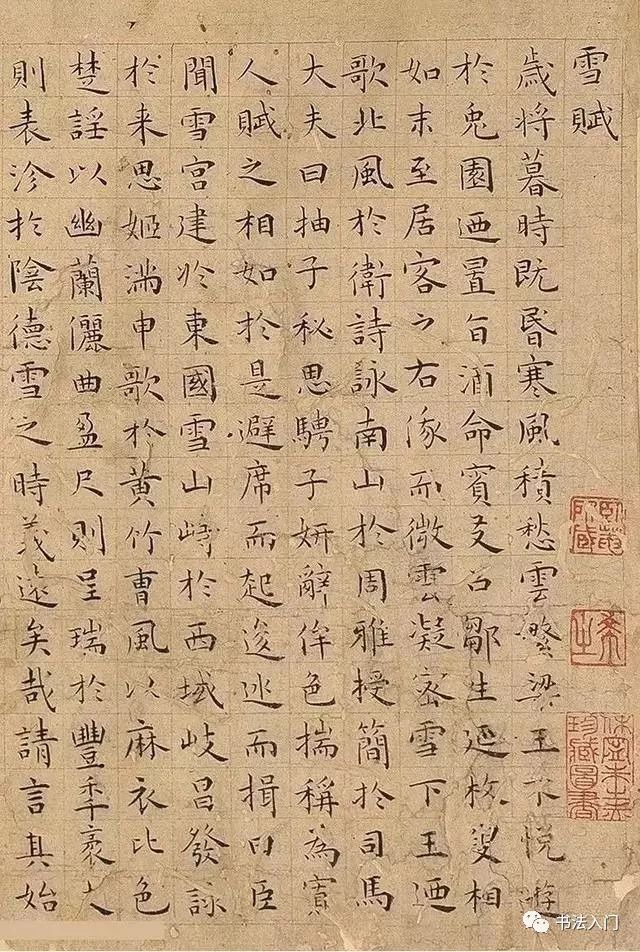 雪賦
歲將暮時既昏寒風積愁雲繁梁王不悅遊
於兔園迺置旨酒命賓友召鄒生延枚叟相
如末至居客之右俄而微雲凝密雪下王迺
歌北風於衛詩詠南山於周雅授簡於司馬
大夫曰抽子秘思騁子妍辭侔色揣稱為寡
人賦之相如於是避席而起逡巡而揖曰臣
聞雪宮建於東國雪山峙於西域岐昌發詠
於来思姬滿申歌於黃竹曹風以麻衣比色
楚謡以幽蘭儷曲盈尺則呈瑞於豐年袤丈
則表沴於陰德雪之時義遠矣哉請言其始
臥菴所藏
休寧朱之赤珍藏圖書
书法入门